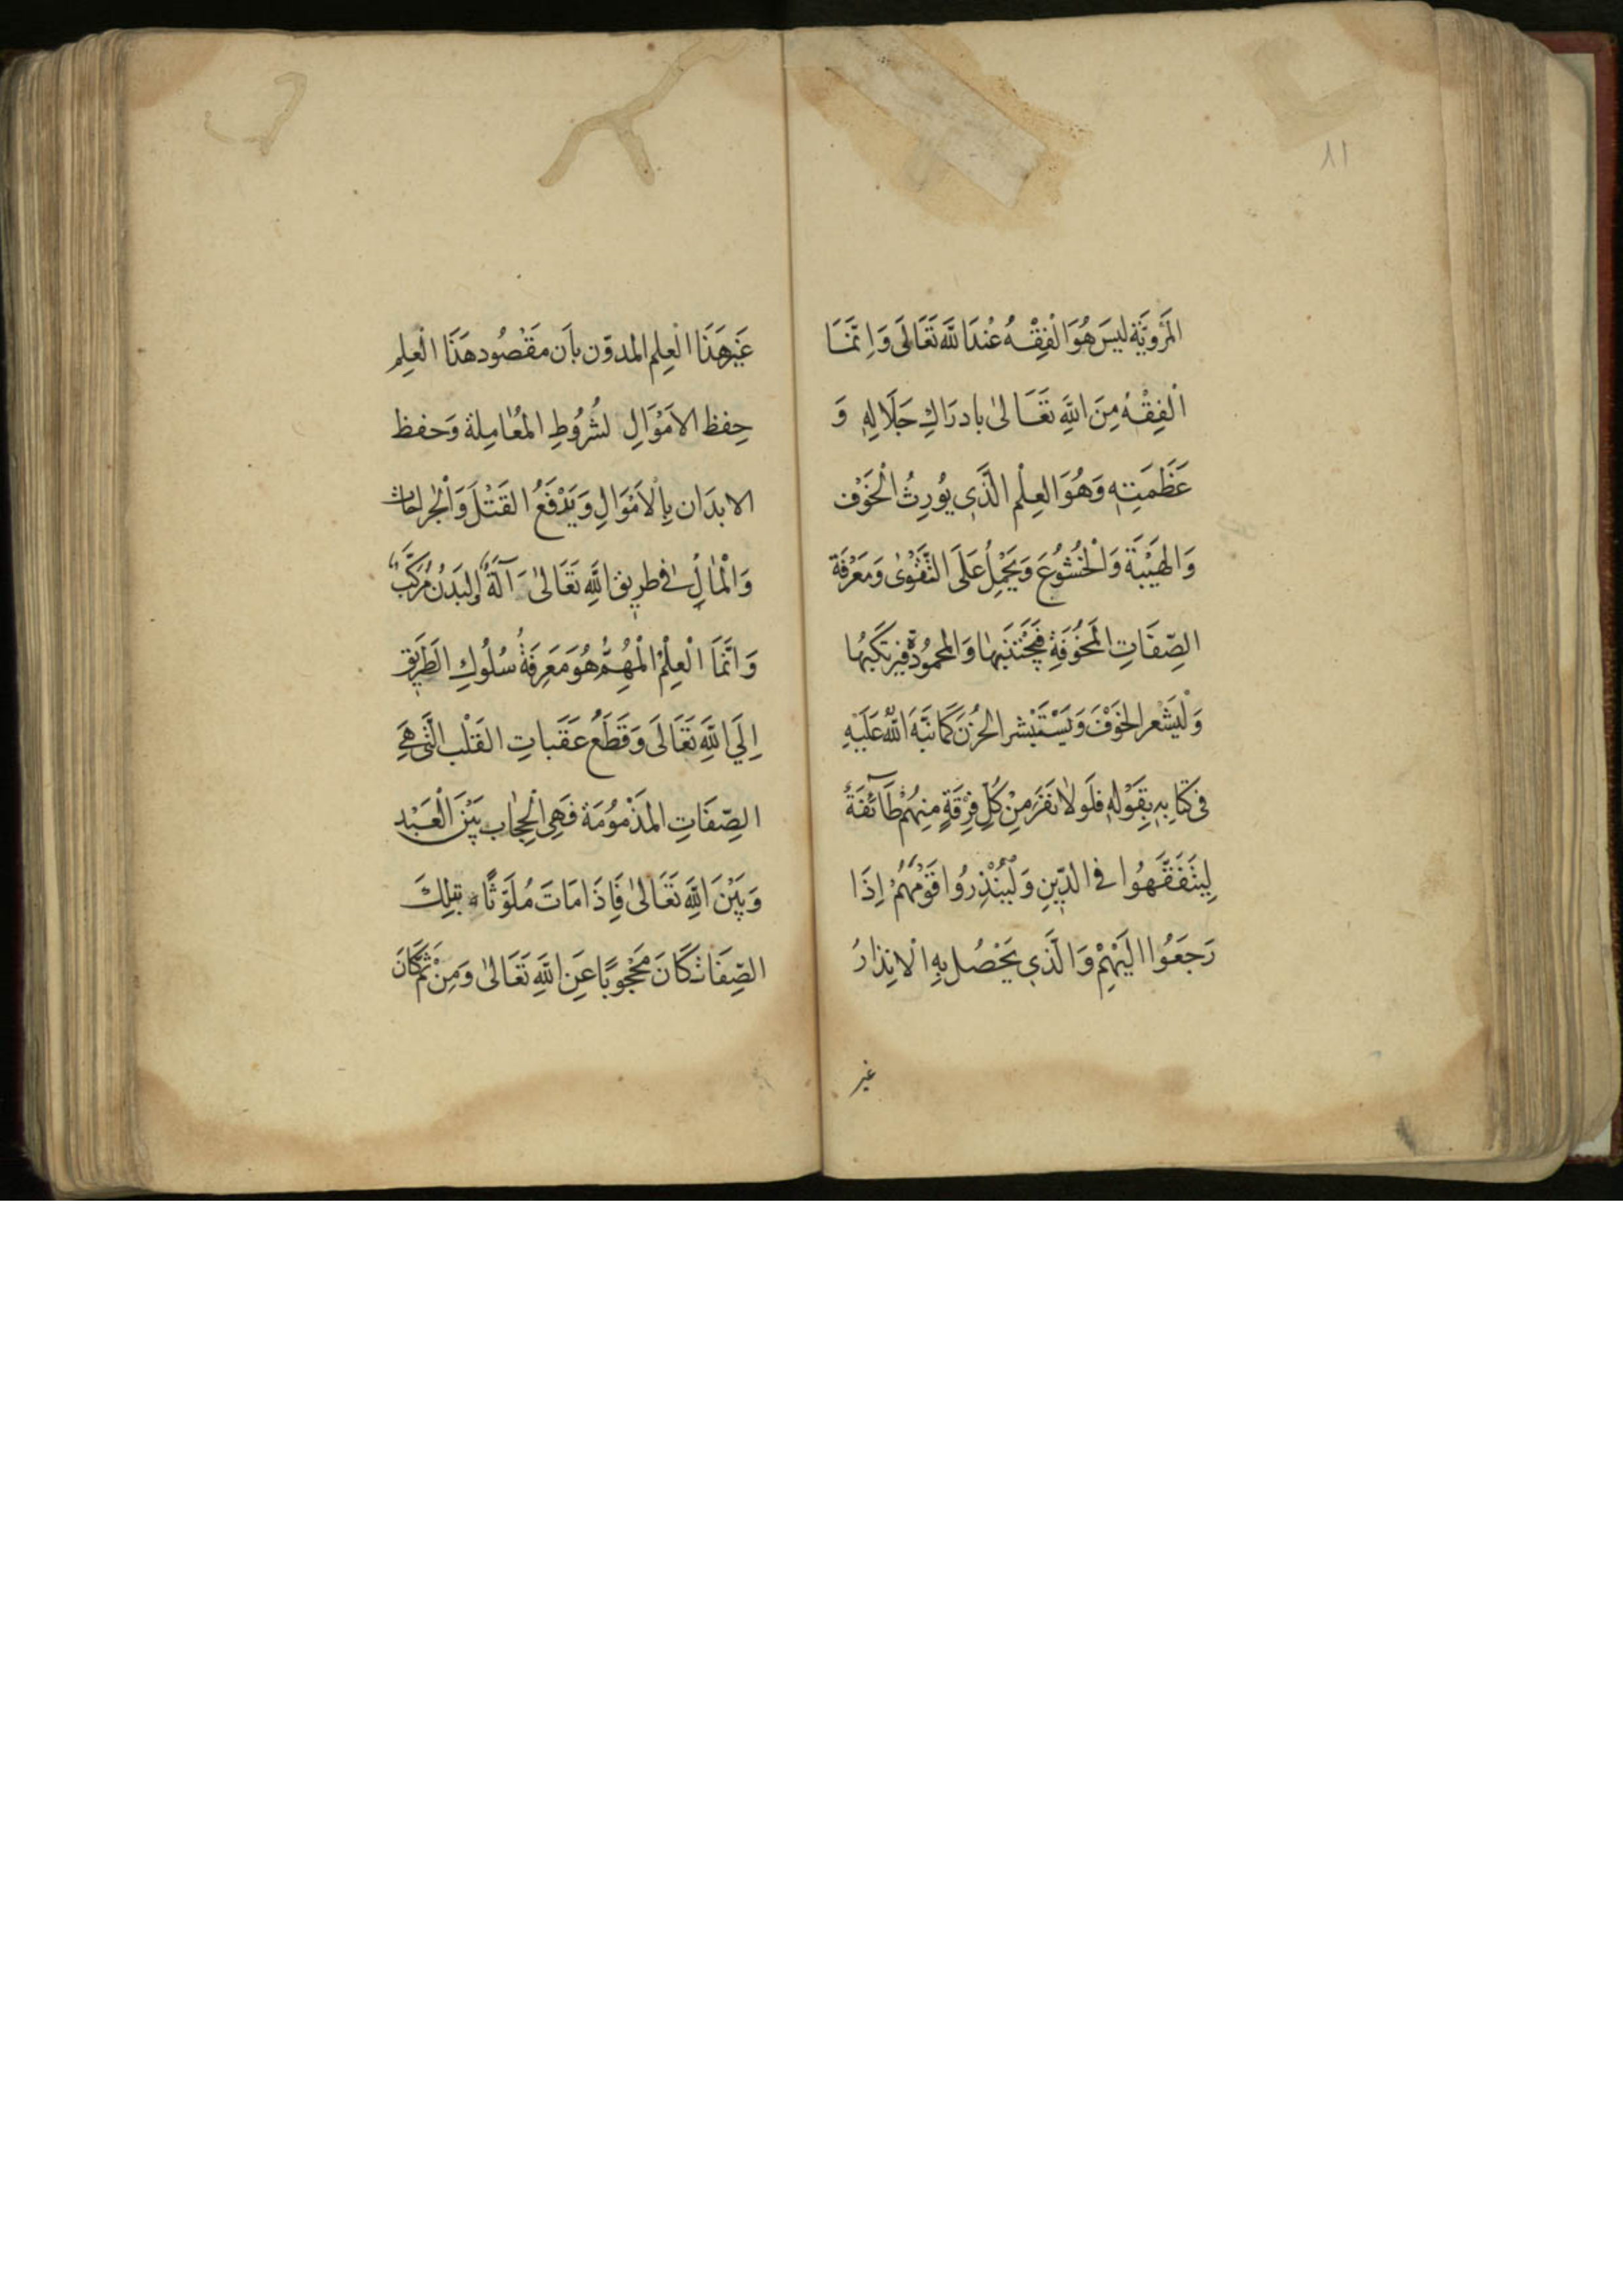 ٨١
المَرْوِيَّةِ ليسَ هُوَ الْفِقْهُ عِنْدَ اللّٰهِ تَعَالَى وَاِنَّمَا
الْفِقْهُ مِنَ اللّٰهِ تَعَالىٰ بادرَاكِ جَلَالِهِ وَ
عَظَمَتِهِ وَهُوَ العِلْم الَّذِى يُورِثُ الْخَوْف
وَالهَيْبَةَ وَالْخُشُوْعَ وَيَحْمِلُ عَلَى التَّقْوٰى وَمَعْرِفَة
الصِّفَاتِ المَخُوْفَةِ فَيَجْتَنِبَهٰا وَالمحمُودَة فيرتكبُهَا
وَلْيَشْعرالخَوْفَ وَيَسْتَبْشر الحُزنَ كَمَا نَبَّهَ اللّٰهُ عَلَيْهِ
فى كَتابِهِ بِقَوْلِهِ فَلَولاٰ نَفَرَ مِنْ كُلِّ فِرْقَةٍ مِنْهُمْ طَآئِفَةٌ
لِيَتَفَقَّهُوا فى الدّيِنِ وَلْيُنْذِرُوا قَوْمَهُمْ اِذَا
رَجَعُوْا اِلَيْهِمْ وَالَّذِى يَحْصُل بِهِ الْاِنذارُ
غير
غَيْر هَذَا الْعِلم المدوّن بأَن مَقْصُود هَذَا الْعِلم
حِفظ الاَمْوَالِ لشُرُوُطِ المُعٰامِلة وَحفظ
الابدَان بِالْاَمْوَالِ وَيَدْفَعُ القَتْلَ وَالْجُراحَاث
وَالْمٰالُ فى طرِيق اللّٰهِ تَعَالىٰ آلَةٌ وَالبَدَنُ مُرَكَّبٌ
وَاِنَّمَا الْعِلْمُ الْمُهِمُّ هُوَ مَعَرِفَةُ سُلُوكِ الَطَرِيق
اِلَي اللّٰهِ تَعَالَى وَقَطْعُ عَقَباتِ القَلْب الَّتى هِيَ
الصِّفَاتِ المَذْمُوْمَة فَهِى الْحِجٰاب بَيْنَ الْعَبْد
وَبَيْنَ اللّٰهِ تَعَالىٰ فَاِذَا مَاتَ مُلَوّثًا بتلِكَ
الصِّفَات كَانَ مَحْجُوبًا عَنِ اللّٰهِ تَعَالىٰ وَمِنْ ثَمَّ كَانَ